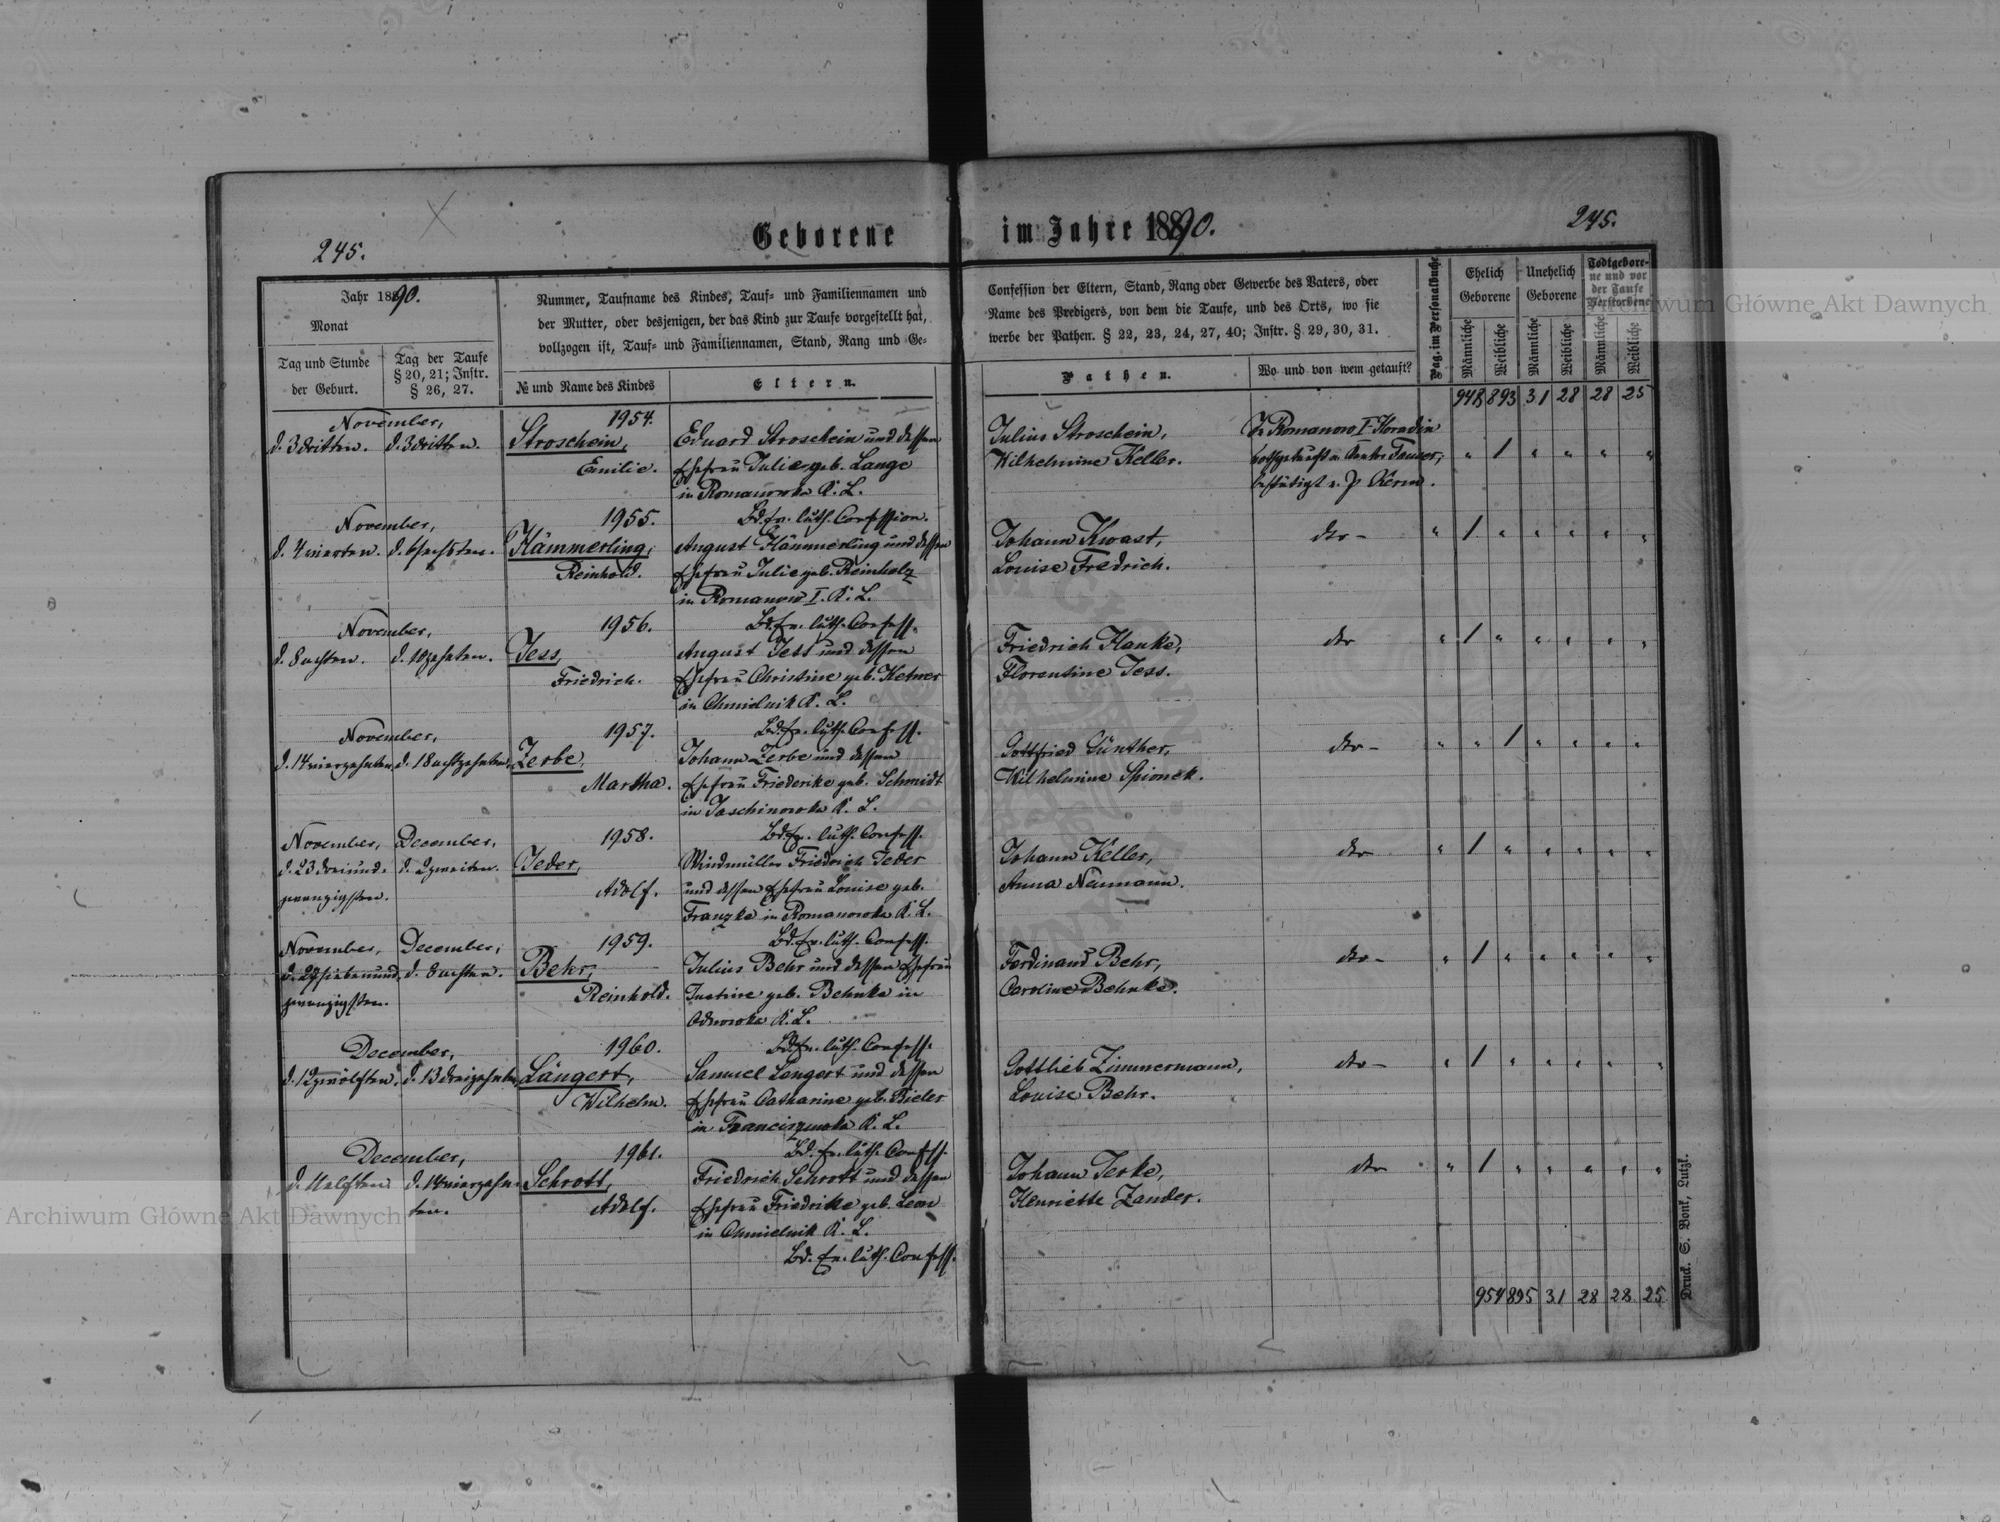 245.
Geborene im Jahre 1890.
245.
Jahr 1890.
Monat
Tag und Stunde
der Geburt.
Tag der Taufe
§ 20, 21; Instr.
§ 26, 27.
Nummer, Taufname des Kindes, Tauf- und Familiennamen und
der Mutter, oder desjenigen, der das Kind zur Taufe vorgestellt hat,
vollzogen ist, Tauf- und Familiennamen, Stand, Rang und Ge-
№ und Name des Kindes
Eltern.
Confession der Eltern, Stand, Rang oder Gewerbe des Vaters, oder
Name des Predigers, von dem die Taufe, und des Orts, wo sie
werbe der Pathen. § 22, 23, 24, 27, 40; Instr. § 29, 30, 31.
Pathen.
Wo und von wem getauft?
Pag. im Personalbuche
Ehelich
Geborene
Unehelich
Geborene
Todtgebore-
ne und vor
der Taufe
Verstorbene
Männliche
Weibliche
Männliche
Weibliche
Männliche
Weibliche
948 893 31 28 28 25
November,
d. 3 dritten. d. 3 dritten.
1954.
Stroschein,
Emilie.
Eduard Stroschein und dessen
Ehefrau Julie geb. Lange
in Romanowka K. L.
Bd. Ev. luth. Confession.
Julius Stroschein,
Wilhelmine Keller.
In Romanow I
nothgetauft v. Cantor
bestätigt v. P. Kerm.
" 1 " " " "
November,
d. 4 vierten. d. 6 sechsten.
1955.
Hämmerling,
Reinhold.
August Hämmerling und dessen
Ehefrau Julie geb. Reinholz
in Romanow I. K. L.
Bd. Ev. luth. Confess.
Johann Kwast,
Louise Fredrich.
dto -
" 1 " " " " "
November,
d. 8 achten. d. 10 zehnten.
1956.
Jess,
Friedrich.
August Jess und dessen
Ehefrau Christine geb. Ketner
in Chmielnik K. L.
Bd. Ev. luth. Confess.
Friedrich Hanke,
Florentine Jess.
dto
" 1 " " " " "
November,
d. 14 vierzehnten d. 18 achtzehnten.
1957.
Zerbe,
Martha.
Johann Zerbe und dessen
Ehefrau Friederike geb. Schmidt
in Jaschinowka K. L.
Bd. Ev. luth. Confess.
Gottfried Günther,
Wilhelmine Spionek.
dto -
" " 1 " " " "
November, December,
d. 23 dreiund- d. 2 zweiten.
zwanzigsten.
1958.
Jeder,
Adolf.
Windmüller Friedrich Jeder
und dessen Ehefrau Louise geb.
Franzke in Romanowka K. L.
Bd. Ev. luth. Confess.
Johann Keller,
Anna Neumann.
dto
" 1 " " " " "
November, December,
d. 27 siebenund- d. 8 achten.
zwanzigsten.
1959.
Behr,
Reinhold.
Julius Behr und dessen Ehefrau
Justine geb. Behnke in
K. L.
Bd. Ev. luth. Confess.
Ferdinand Behr,
Caroline Behnke.
dto -
" 1 " " " " "
December,
d. 12 zwölften. d. 13 dreizehnten
1960.
Längert,
Wilhelm.
Samuel Längert und dessen
Ehefrau Catharine geb. Bieler
in Franciszowka K. L.
Bd. Ev. luth. Confess.
Gottlieb Zimmermann,
Louise Behr.
dto -
" 1 " " " " "
December,
d. 11 elften. d. 14 vierzehn-
ten.
1961.
Schrott,
Adolf.
Friedrich Schrott und dessen
Ehefrau Friedrike geb. Leon
in Chmielnik K. L.
Bd. Ev. luth. Confess.
Johann Jeske,
Henriette Zander.
dto
" 1 " " " " "
954 895 31 28 28 25
Druck. S. Bonk, Lutzk.
Archiwum Główne Akt Dawnych
Archiwum Główne Akt Dawnych